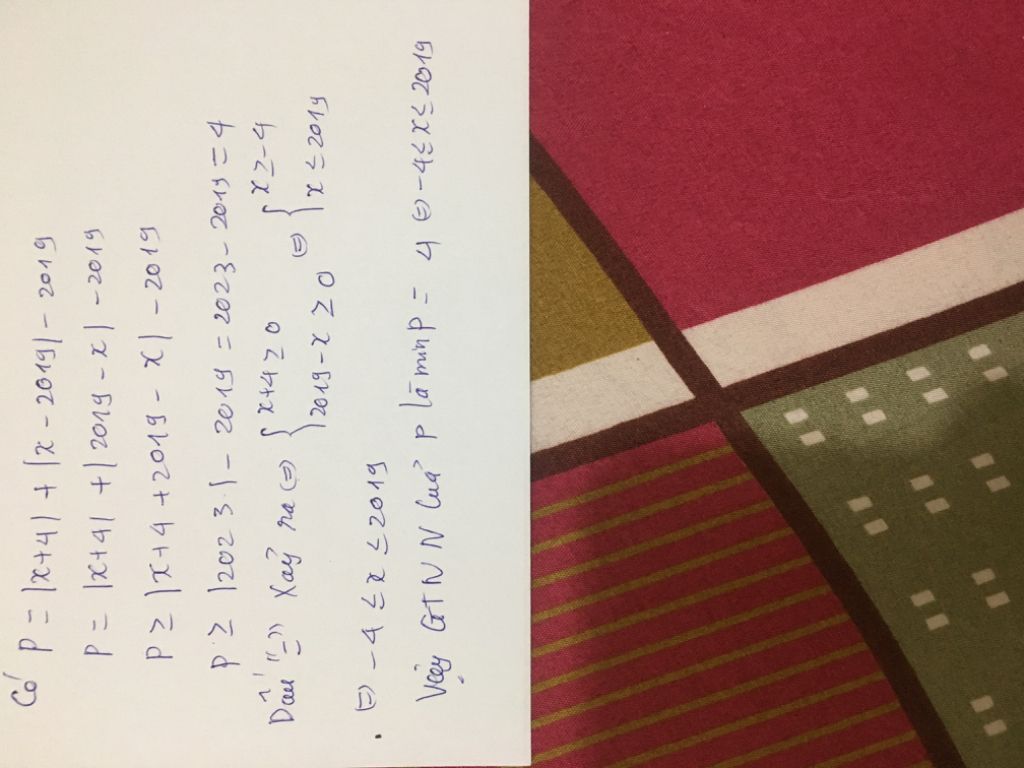 Có P = |x+4| + |x - 2019| - 2019
P = |x+4| + |2019 - x| - 2019
P ≥ |x+4 + 2019 - x| - 2019
P ≥ |2023| - 2019 = 2023 - 2019 = 4
Dấu "=" xảy ra ⇔ { x+4 ≥ 0 ⇔ { x ≥ -4
2019 - x ≥ 0 x ≤ 2019
⇔ -4 ≤ x ≤ 2019
Vậy GTNN của P là min P = 4 ⇔ -4 ≤ x ≤ 2019